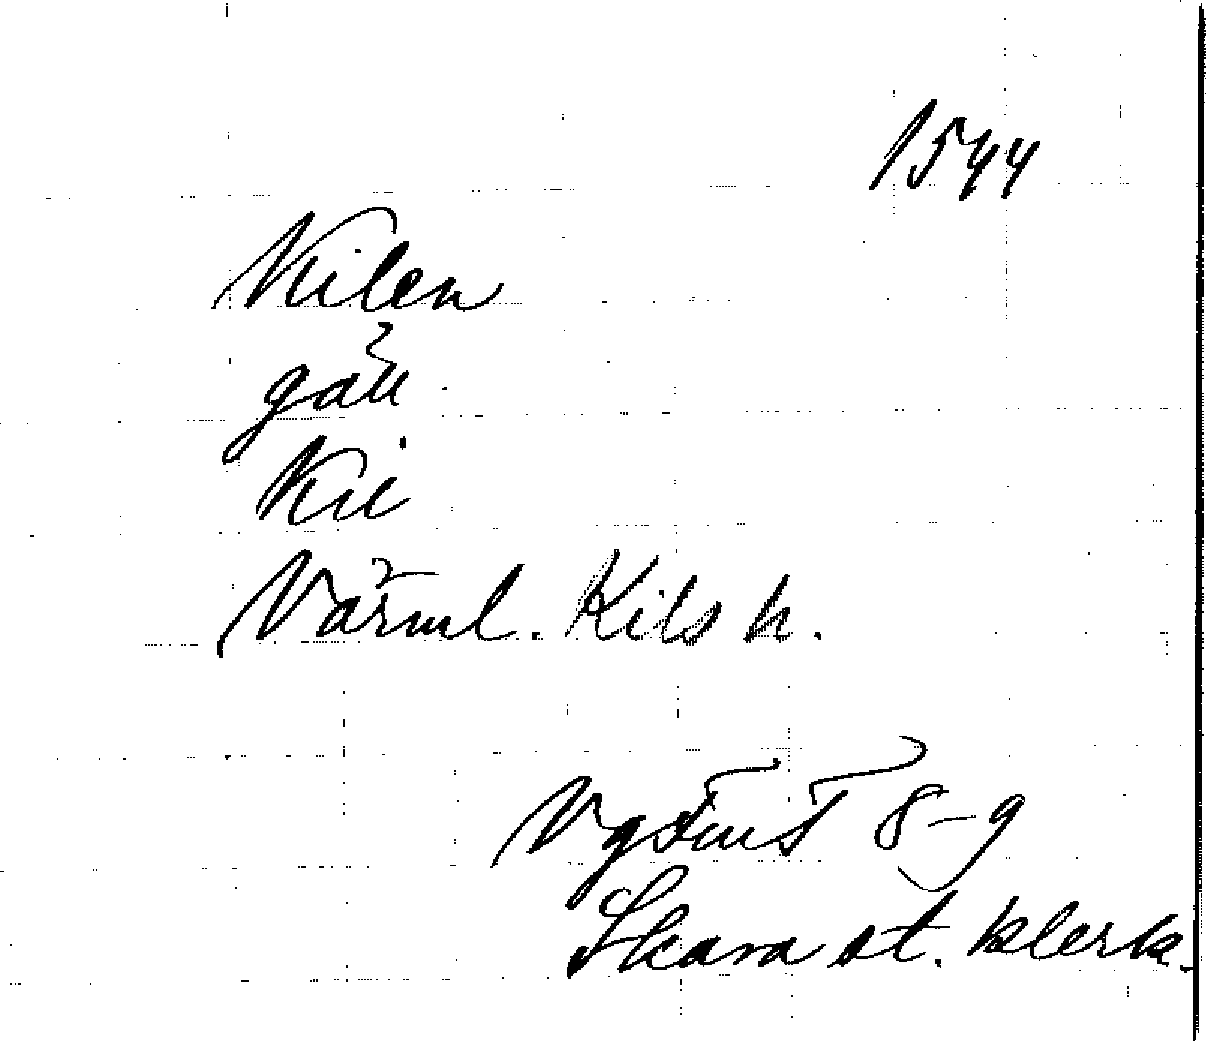 1544
Kilen
gård
Kil
Värml. Kils h.
VgFmT 8-9
Skara st. klerk.